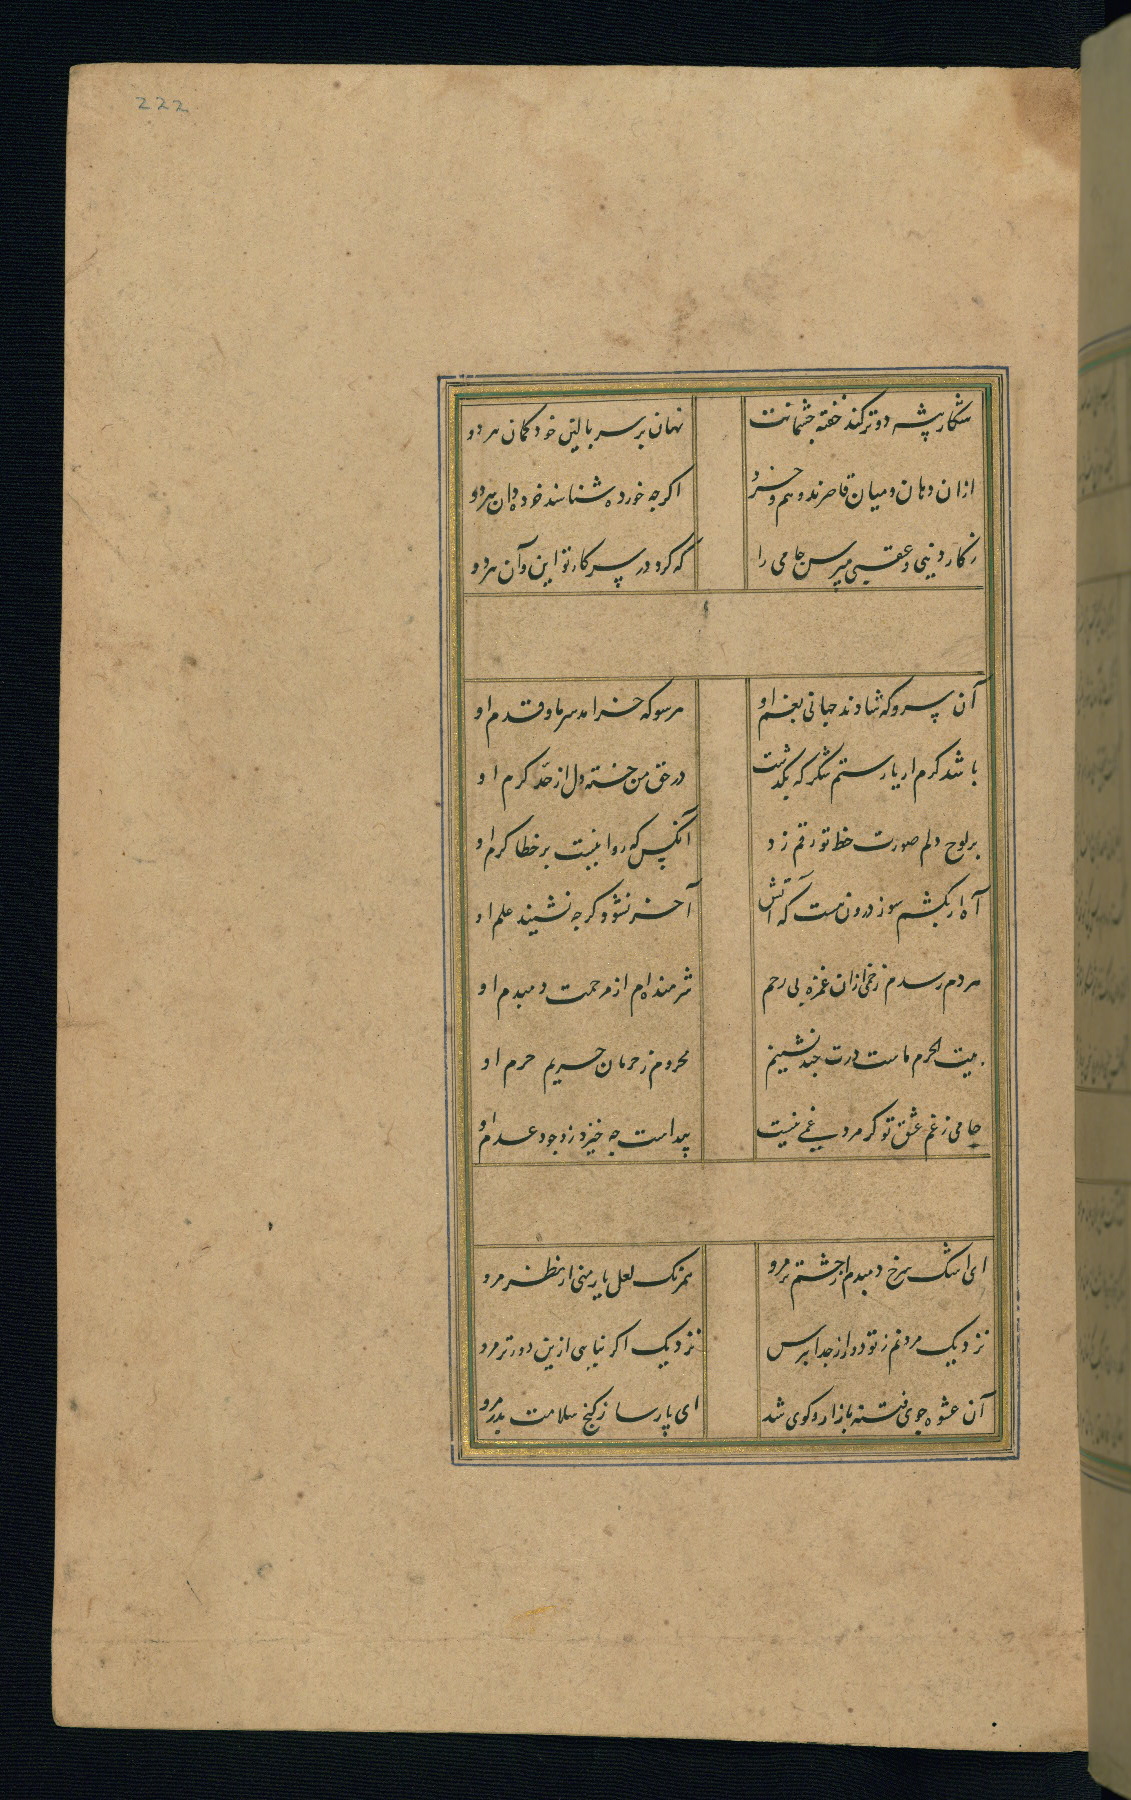 222
شکار پیشه دو ترکند خفته چشمانت نهان بر سر بالین خود کمان هر دو
ازان دهان و میان قاصرند وهم و خرد اکرچه خورده شناسند خرده دان هر دو
ز کار دنیی و عقبی مپرس جامی را که کرد در سر کار تو این و آن هر دو
آن سرو که شادند جهانی بغم او هر سو که خرامد سر ما و قدم او
باشد کرم از یار ستم شکر که بکذشت در حق من خسته دل از حد کرم او
بر لوح دلم صورت خط تو رقم زد آنکس که روا نیست بر خطا کرم او
آه ار بکشم سوز درون هست که آتش آخر نشود کرچه نشیند علم او
هر دم رسدم زخمی ازان غمزه بی رحم شرمنده ام از مرحمت دمبدم او
بیت الحرم ماست درت چند نشینم محروم ز حرمان حریم حرم او
جامی ز غم عشق تو کر مرد غمی نیست پیداست چه خیزد ز وجود و عدم او
ای اشک سرخ دمبدم از چشم تر مرو همرنک لعل یار منی از نظر مرو
نزدیک مردنم ز تو دور از جدا مرس نزدیک اکر نیایی ازین دورتر مرو
آن عشوه جوی فتنه بازار و کوی شد ای پارسا ز کنج سلامت بدر مرو